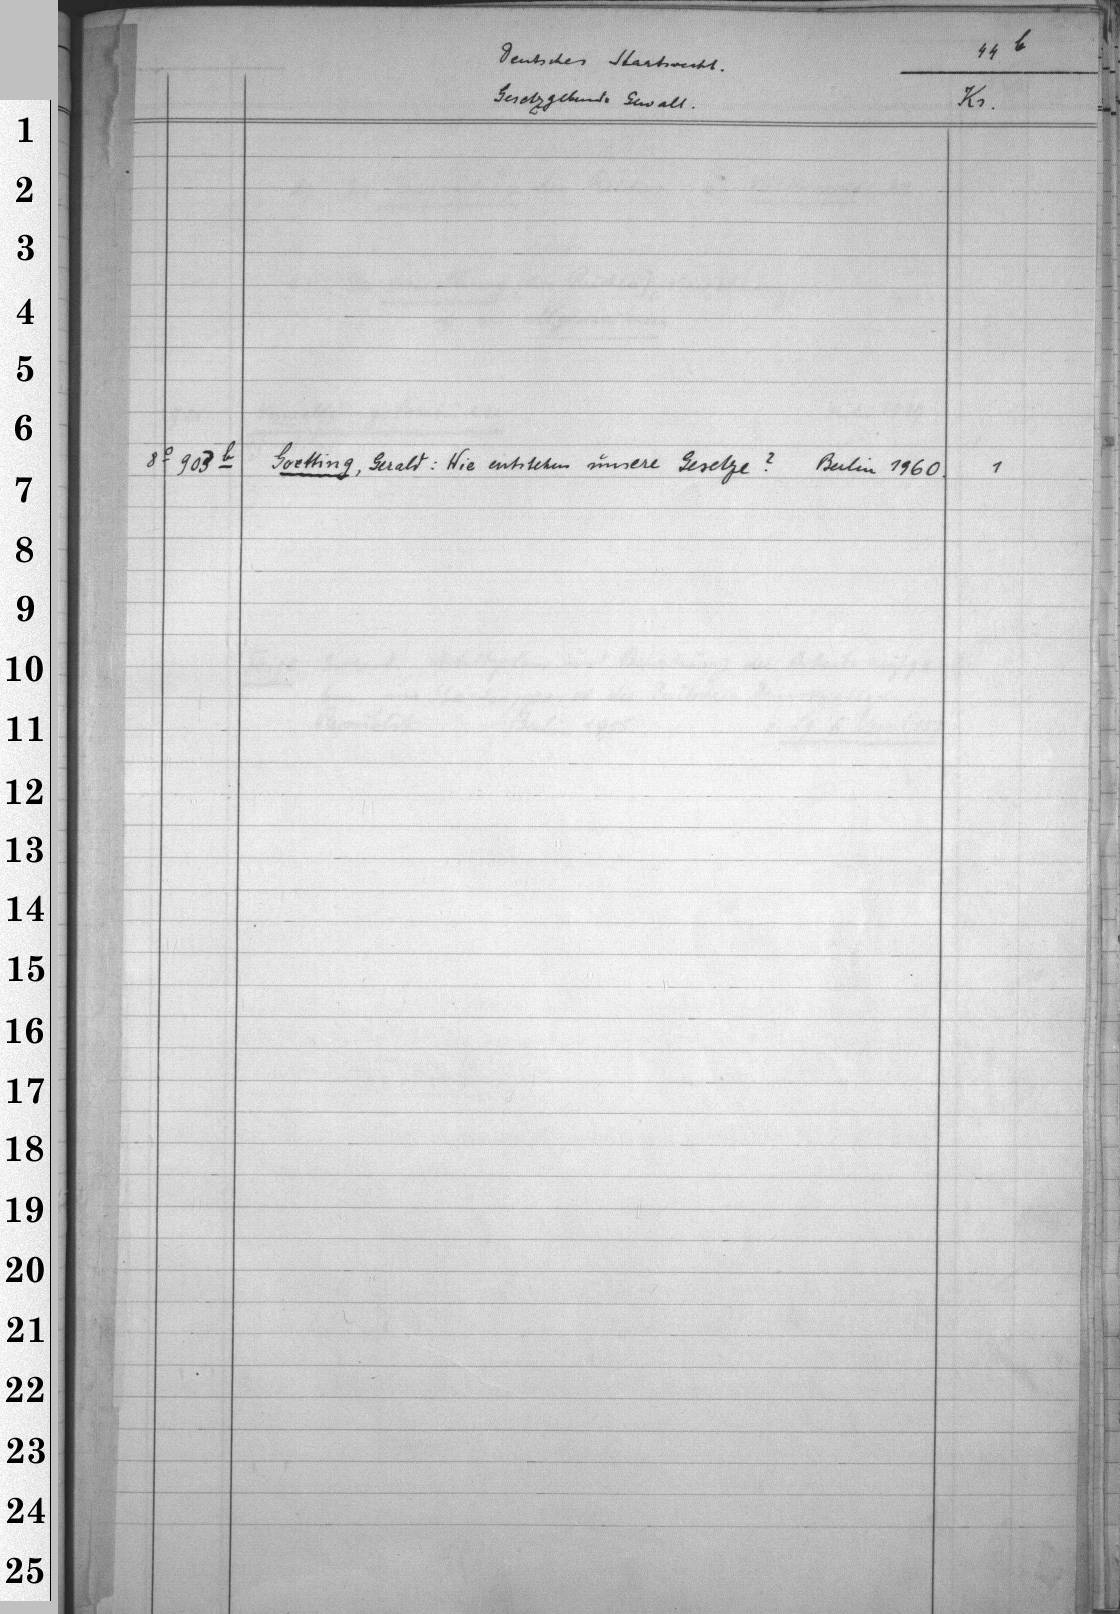 Deutsches Staatsrecht. 44 b
Gesetzgebende Gewalt. Ks.
8° 903 b Goetting, Gerald: Wie entstehen unsere Gesetze? Berlin 1960. 1
1
2
3
4
5
6
7
8
9
10
11
12
13
14
15
16
17
18
19
20
21
22
23
24
25